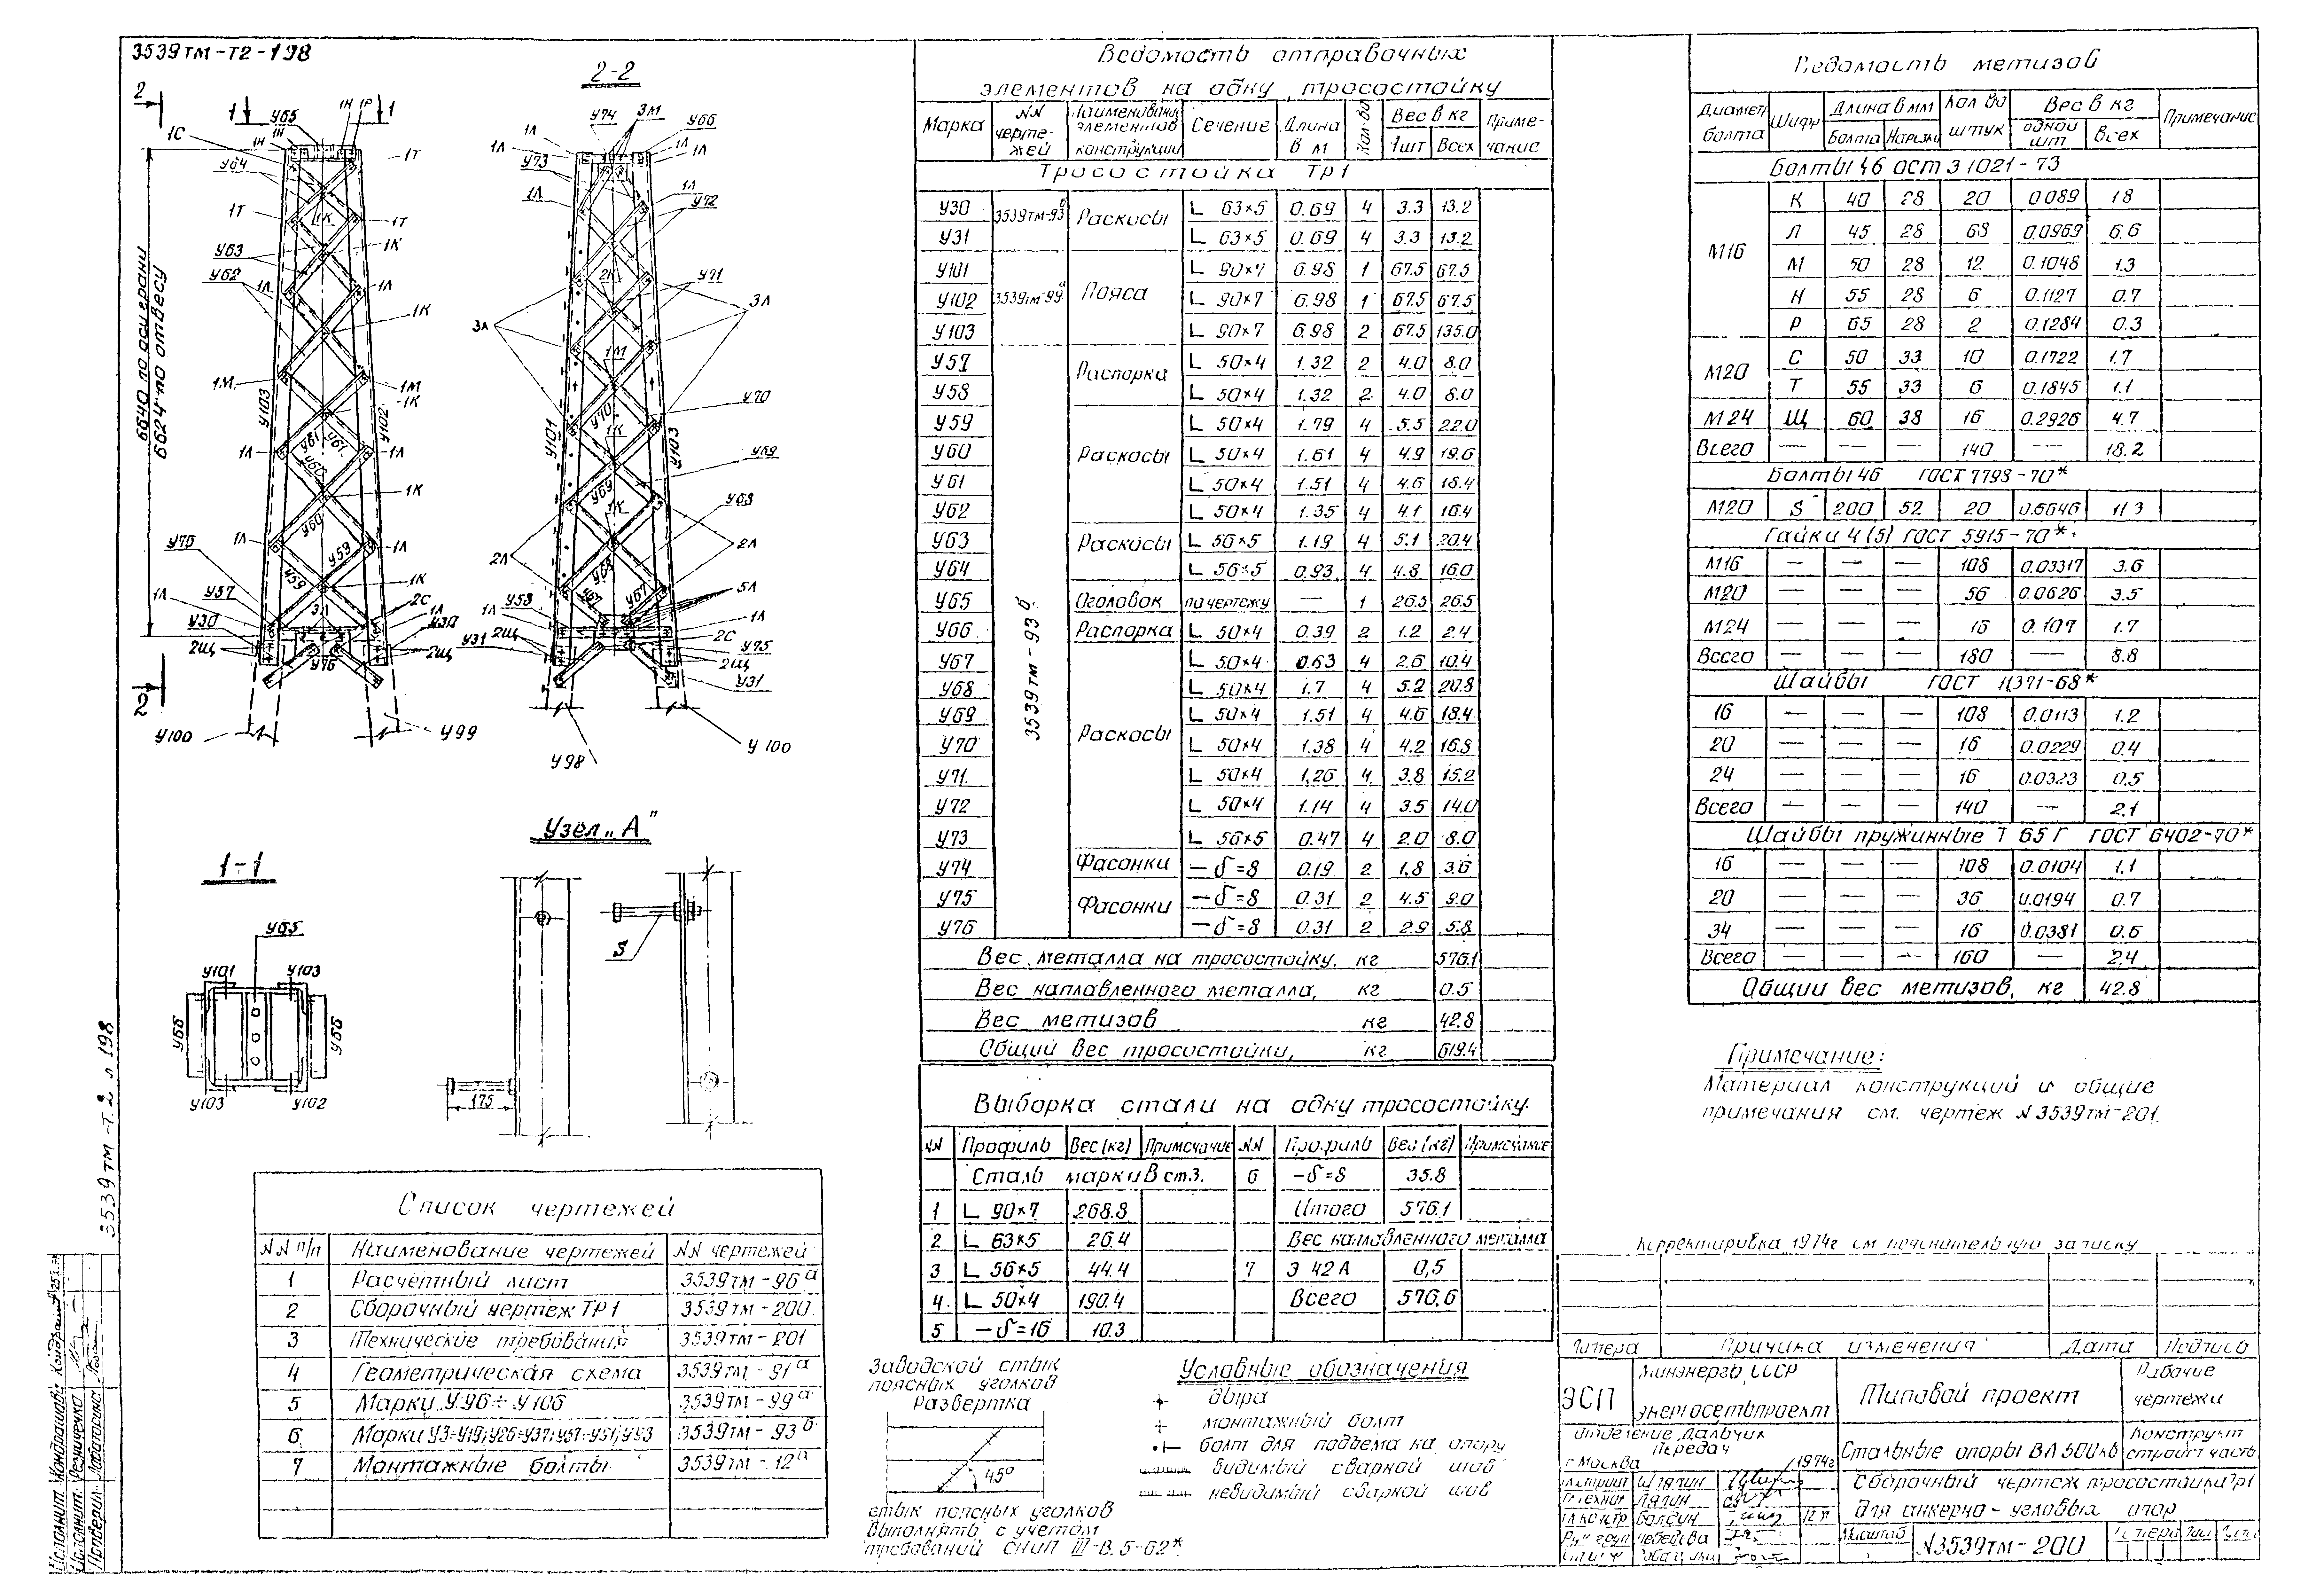 3539ТМ-Т2-198
2-2
1-1
Узел „А"
6640 по оси грани
6624 по отвесу
У65
У64
У63
У62
У103
У102
У61
У60
У59
У76
У57
У30
У100
У99
У74
У66
У73
У72
У71
У70
У69
У68
У101
У103
У58
У31
У75
У98
У100
У65
У101 У103
У66 У66
У103 У102
175
S
Список чертежей
NN п/п Наименование чертежей NN чертежей
1 Расчётный лист 3539тм-96а
2 Сборочный чертеж ТР1 3539тм-200
3 Технические требования 3539тм-201
4 Геометрическая схема 3539тм-91а
5 Марки У96÷У106 3539тм-99а
6 Марки У3÷У19; У26÷У37; У57÷У91; У93 3539тм-93б
7 Монтажные болты 3539тм-12а
Ведомость отправочных
элементов на одну тросостойку
Марка NN чертежей Наименование элементов конструкции Сечение Длина в м Кол-во Вес в кг Примечание
1шт Всех
Тросостойка Тр1
У30 3539тм-93б Раскосы L 63×5 0.69 4 3.3 13.2
У31 L 63×5 0.69 4 3.3 13.2
У101 L 90×7 6.98 1 67.5 67.5
У102 3539тм-99а Пояса L 90×7 6.98 1 67.5 67.5
У103 L 90×7 6.98 2 67.5 135.0
У57 3539тм-93б Распорка L 50×4 1.32 2 4.0 8.0
У58 L 50×4 1.32 2 4.0 8.0
У59 L 50×4 1.79 4 5.5 22.0
У60 Раскосы L 50×4 1.61 4 4.9 19.6
У61 L 50×4 1.51 4 4.6 18.4
У62 L 50×4 1.35 4 4.1 16.4
У63 Раскосы L 56×5 1.19 4 5.1 20.4
У64 L 56×5 0.93 4 4.8 16.0
У65 Оголовок по чертежу — 1 26.5 26.5
У66 Распорка L 50×4 0.39 2 1.2 2.4
У67 L 50×4 0.63 4 2.6 10.4
У68 L 50×4 1.7 4 5.2 20.8
У69 L 50×4 1.51 4 4.6 18.4
У70 Раскосы L 50×4 1.38 4 4.2 16.8
У71 L 50×4 1,26 4 3.8 15.2
У72 L 50×4 1.14 4 3.5 14.0
У73 L 56×5 0.47 4 2.0 8.0
У74 Фасонки —δ=8 0.19 2 1,8 3.6
У75 Фасонки —δ=8 0.31 2 4.5 9.0
У76 —δ=8 0.31 2 2.9 5.8
Вес металла на тросостойку, кг 576.1
Вес наплавленного металла, кг 0.5
Вес метизов кг 42.8
Общий вес тросостойки, кг 619.4
Выборка стали на одну тросостойку.
NN Профиль Вес (кг) Примечание NN Профиль Вес (кг) Примечание
Сталь марки В ст.3. 6 —δ=8 35.8
1 L 90×7 268.8 Итого 576.1
2 L 63×5 26.4 Вес наплавленного металла
3 L 56×5 44.4 7 Э 42А 0,5
4 L 50×4 190.4 Всего 576.6
5 —δ=16 10.3
Заводской стык
поясных уголков
Развертка
45°
стык поясных уголков
выполнять с учетом
требований СНиП III-В.5-62*
Условные обозначения
дыра
монтажный болт
болт для подъема на опору
видимый сварной шов
невидимый сварной шов
Ведомость метизов
Диаметр болта Шифр Длина в мм Кол-во штук Вес в кг Примечание
Болта Нарезки одной шт всех
Болты 46 ост 3 1021-73
М16 К 40 28 20 0.089 1.8
Л 45 28 68 0.0969 6.6
М 50 28 12 0.1048 1.3
Н 55 28 6 0.1127 0.7
Р 65 28 2 0.1284 0.3
М20 С 50 33 10 0.1722 1.7
Т 55 33 6 0.1845 1.1
М24 Щ 60 38 16 0.2926 4.7
Всего — — — 140 — 18.2
Болты 46 ГОСТ 7798-70*
М20 S 200 52 20 0.5646 11.3
Гайки 4(5) ГОСТ 5915-70*
М16 — — — 108 0.03317 3.6
М20 — — — 56 0.0626 3.5
М24 — — — 16 0.107 1.7
Всего 180 — 8.8
Шайбы ГОСТ 11371-68*
16 — — — 108 0.0113 1.2
20 — — — 16 0.0229 0.4
24 — — — 16 0.0323 0.5
Всего — — — 140 — 2.1
Шайбы пружинные Т 65Г ГОСТ 6402-70*
16 — — — 108 0.0104 1,1
20 — — — 36 0.0194 0.7
34 — — — 16 0.0381 0.6
Всего — — — 160 — 2.4
Общий вес метизов, кг 42.8
Примечание:
Материал конструкций и общие
примечания см. чертеж N 3539тм-201.
Корректировка 1974г см пояснительную записку
Литера Причина изменения Дата Подпись
ЭСП Минэнерго СССР
Энергосетьпроект
Отделение дальних передач
г Москва 1974г
Типовой проект
Рабочие чертежи
Стальные опоры ВЛ 500кв
Сборочный чертеж тросостойки Тр1
для анкерно-угловых опор
Масштаб N3539тм-200
3539ТМ-Т.2 л 198